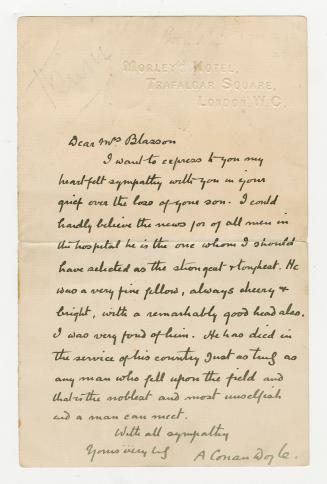 MORLEY'S HOTEL,
TRAFALGAR SQUARE,
LONDON. W.C.
Dear Mrs Blasson
I want to express to you my
heartfelt sympathy with you in your
grief over the loss of your son. I could
hardly believe the news for of all men in
the hospital he is the one whom I should
have selected as the strongest & toughest. He
was a very fine fellow, always cheery &
bright, with a remarkably good head also.
I was very fond of him. He has died in
the service of his country just as truly as
any man who fell upon the field and
that is the noblest and most unselfish
end a man can meet.
With all sympathy
Yours very truly
A Conan Doyle.